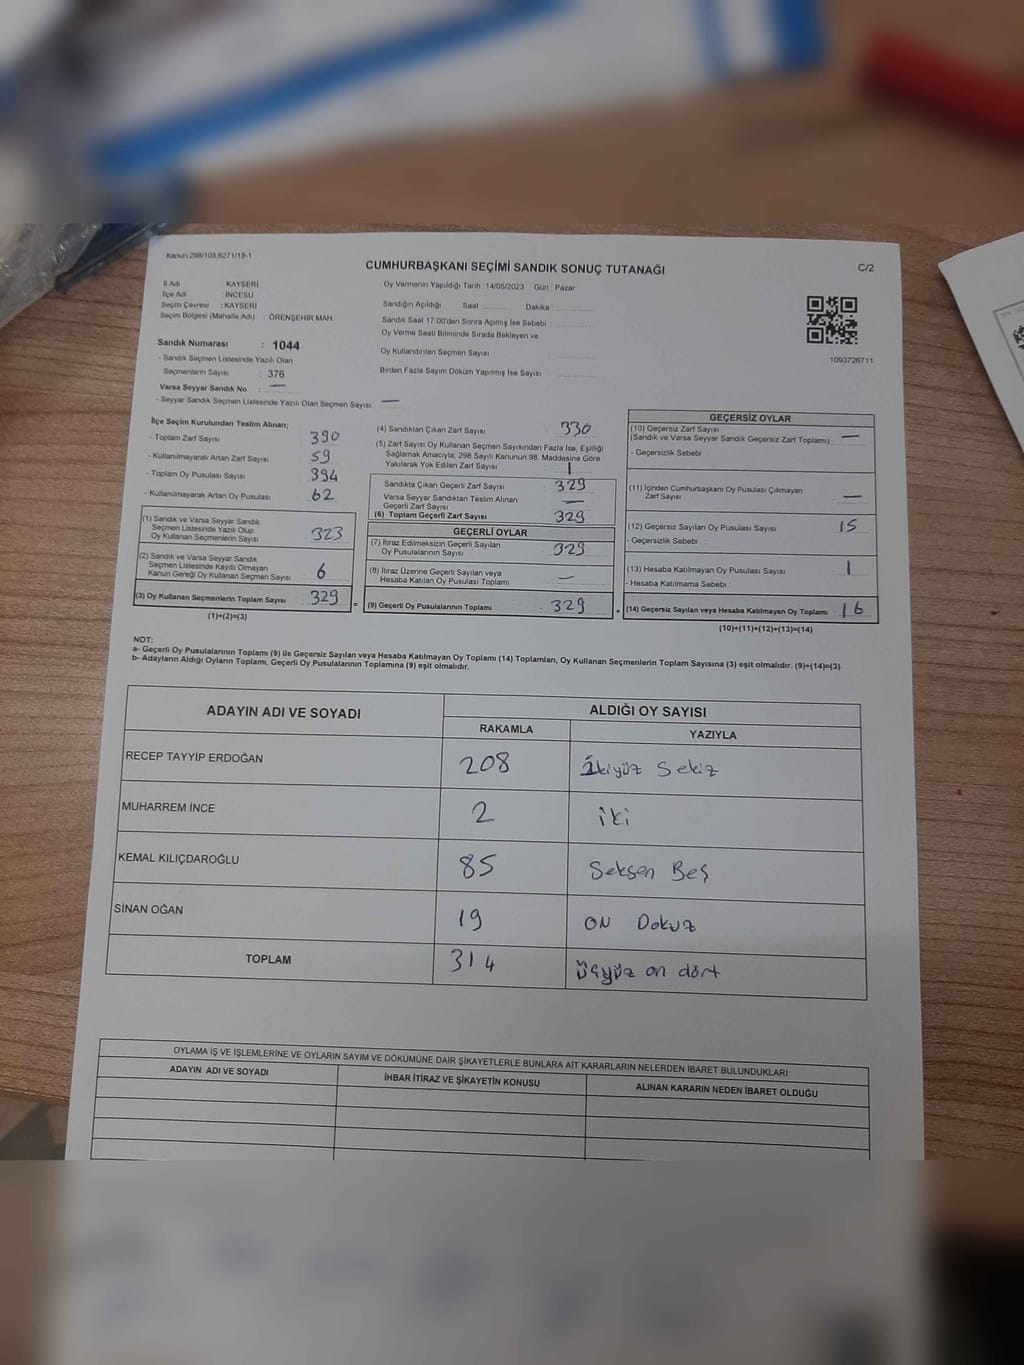 Kanun 298/105,6271/18-1
CUMHURBAŞKANI SEÇİMİ SANDIK SONUÇ TUTANAĞI
C/2
İl Adı : KAYSERİ
İlçe Adı : İNCESU
Seçim Çevresi : KAYSERİ
Seçim Bölgesi (Mahalle Adı) : ÖRENŞEHİR MAH.
Oy Vermenin Yapıldığı Tarih : 14/05/2023 Gün : Pazar
Sandığın Açıldığı Saat Dakika :
Sandık Saat 17:00'den Sonra Açılmış İse Sebebi :
Oy Verme Saati Bitiminde Sırada Bekleyen ve
Oy Kullandırılan Seçmen Sayısı :
Birden Fazla Sayım Döküm Yapılmış İse Sayısı :
1093726711
Sandık Numarası : 1044
- Sandık Seçmen Listesinde Yazılı Olan
Seçmenlerin Sayısı : 376
Varsa Seyyar Sandık No : —
- Seyyar Sandık Seçmen Listesinde Yazılı Olan Seçmen Sayısı: —
İlçe Seçim Kurulundan Teslim Alınan;
- Toplam Zarf Sayısı 390
- Kullanılmayarak Artan Zarf Sayısı 59
- Toplam Oy Pusulası Sayısı 394
- Kullanılmayarak Artan Oy Pusulası 62
(1) Sandık ve Varsa Seyyar Sandık
Seçmen Listesinde Yazılı Olup
Oy Kullanan Seçmenlerin Sayısı 323
(2) Sandık ve Varsa Seyyar Sandık
Seçmen Listesinde Kayıtlı Olmayan
Kanun Gereği Oy Kullanan Seçmen Sayısı 6
(3) Oy Kullanan Seçmenlerin Toplam Sayısı 329
(1)+(2)=(3)
(4) Sandıktan Çıkan Zarf Sayısı 330
(5) Zarf Sayısı Oy Kullanan Seçmen Sayısından Fazla İse, Eşitliği
Sağlamak Amacıyla, 298 Sayılı Kanunun 98. Maddesine Göre
Yakılarak Yok Edilen Zarf Sayısı 1
Sandıkta Çıkan Geçerli Zarf Sayısı : 329
Varsa Seyyar Sandıktan Teslim Alınan
Geçerli Zarf Sayısı —
(6) Toplam Geçerli Zarf Sayısı 329
GEÇERLİ OYLAR
(7) İtiraz Edilmeksizin Geçerli Sayılan
Oy Pusulalarının Sayısı : 329
(8) İtiraz Üzerine Geçerli Sayılan veya
Hesaba Katılan Oy Pusulası Toplamı : —
= (9) Geçerli Oy Pusulalarının Toplamı : 329 +
GEÇERSİZ OYLAR
(10) Geçersiz Zarf Sayısı
(Sandık ve Varsa Seyyar Sandık Geçersiz Zarf Toplamı) : —
- Geçersizlik Sebebi :
(11) İçinden Cumhurbaşkanı Oy Pusulası Çıkmayan
Zarf Sayısı : —
(12) Geçersiz Sayılan Oy Pusulası Sayısı : 15
- Geçersizlik Sebebi :
(13) Hesaba Katılmayan Oy Pusulası Sayısı : 1
- Hesaba Katılmama Sebebi :
(14) Geçersiz Sayılan veya Hesaba Katılmayan Oy Toplamı : 16
(10)+(11)+(12)+(13)=(14)
NOT:
a- Geçerli Oy Pusulalarının Toplamı (9) ile Geçersiz Sayılan veya Hesaba Katılmayan Oy Toplamı (14) Toplamları, Oy Kullanan Seçmenlerin Toplam Sayısına (3) eşit olmalıdır. (9)+(14)=(3)
b- Adayların Aldığı Oyların Toplamı, Geçerli Oy Pusulalarının Toplamına (9) eşit olmalıdır.
ADAYIN ADI VE SOYADI ALDIĞI OY SAYISI
RAKAMLA YAZIYLA
RECEP TAYYİP ERDOĞAN 208 İkiyüz Sekiz
MUHARREM İNCE 2 iki
KEMAL KILIÇDAROĞLU 85 Seksen Beş
SİNAN OĞAN 19 ON Dokuz
TOPLAM 314 üçyüz on dört
OYLAMA İŞ VE İŞLEMLERİNE VE OYLARIN SAYIM VE DÖKÜMÜNE DAİR ŞİKAYETLERLE BUNLARA AİT KARARLARIN NELERDEN İBARET BULUNDUKLARI
ADAYIN ADI VE SOYADI İHBAR İTİRAZ VE ŞİKAYETİN KONUSU ALINAN KARARIN NEDEN İBARET OLDUĞU